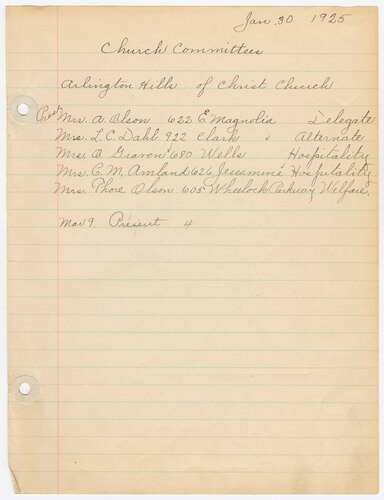 Jan. 30 1925
Church Committees
Arlington Hills of Christ Church
Pres. Mrs. A Olson 622 E Magnolia Delegate
Mrs. L. C. Dahl 922 Clark " Alternate
Mrs. O. Graven 680 Wells Hospitality
Mrs. E. M. Amland 626 Jessamine " Hospitality
Mrs. Phore Olson 605 Wheelock Parkway Welfare.
Mar 9. Present 4